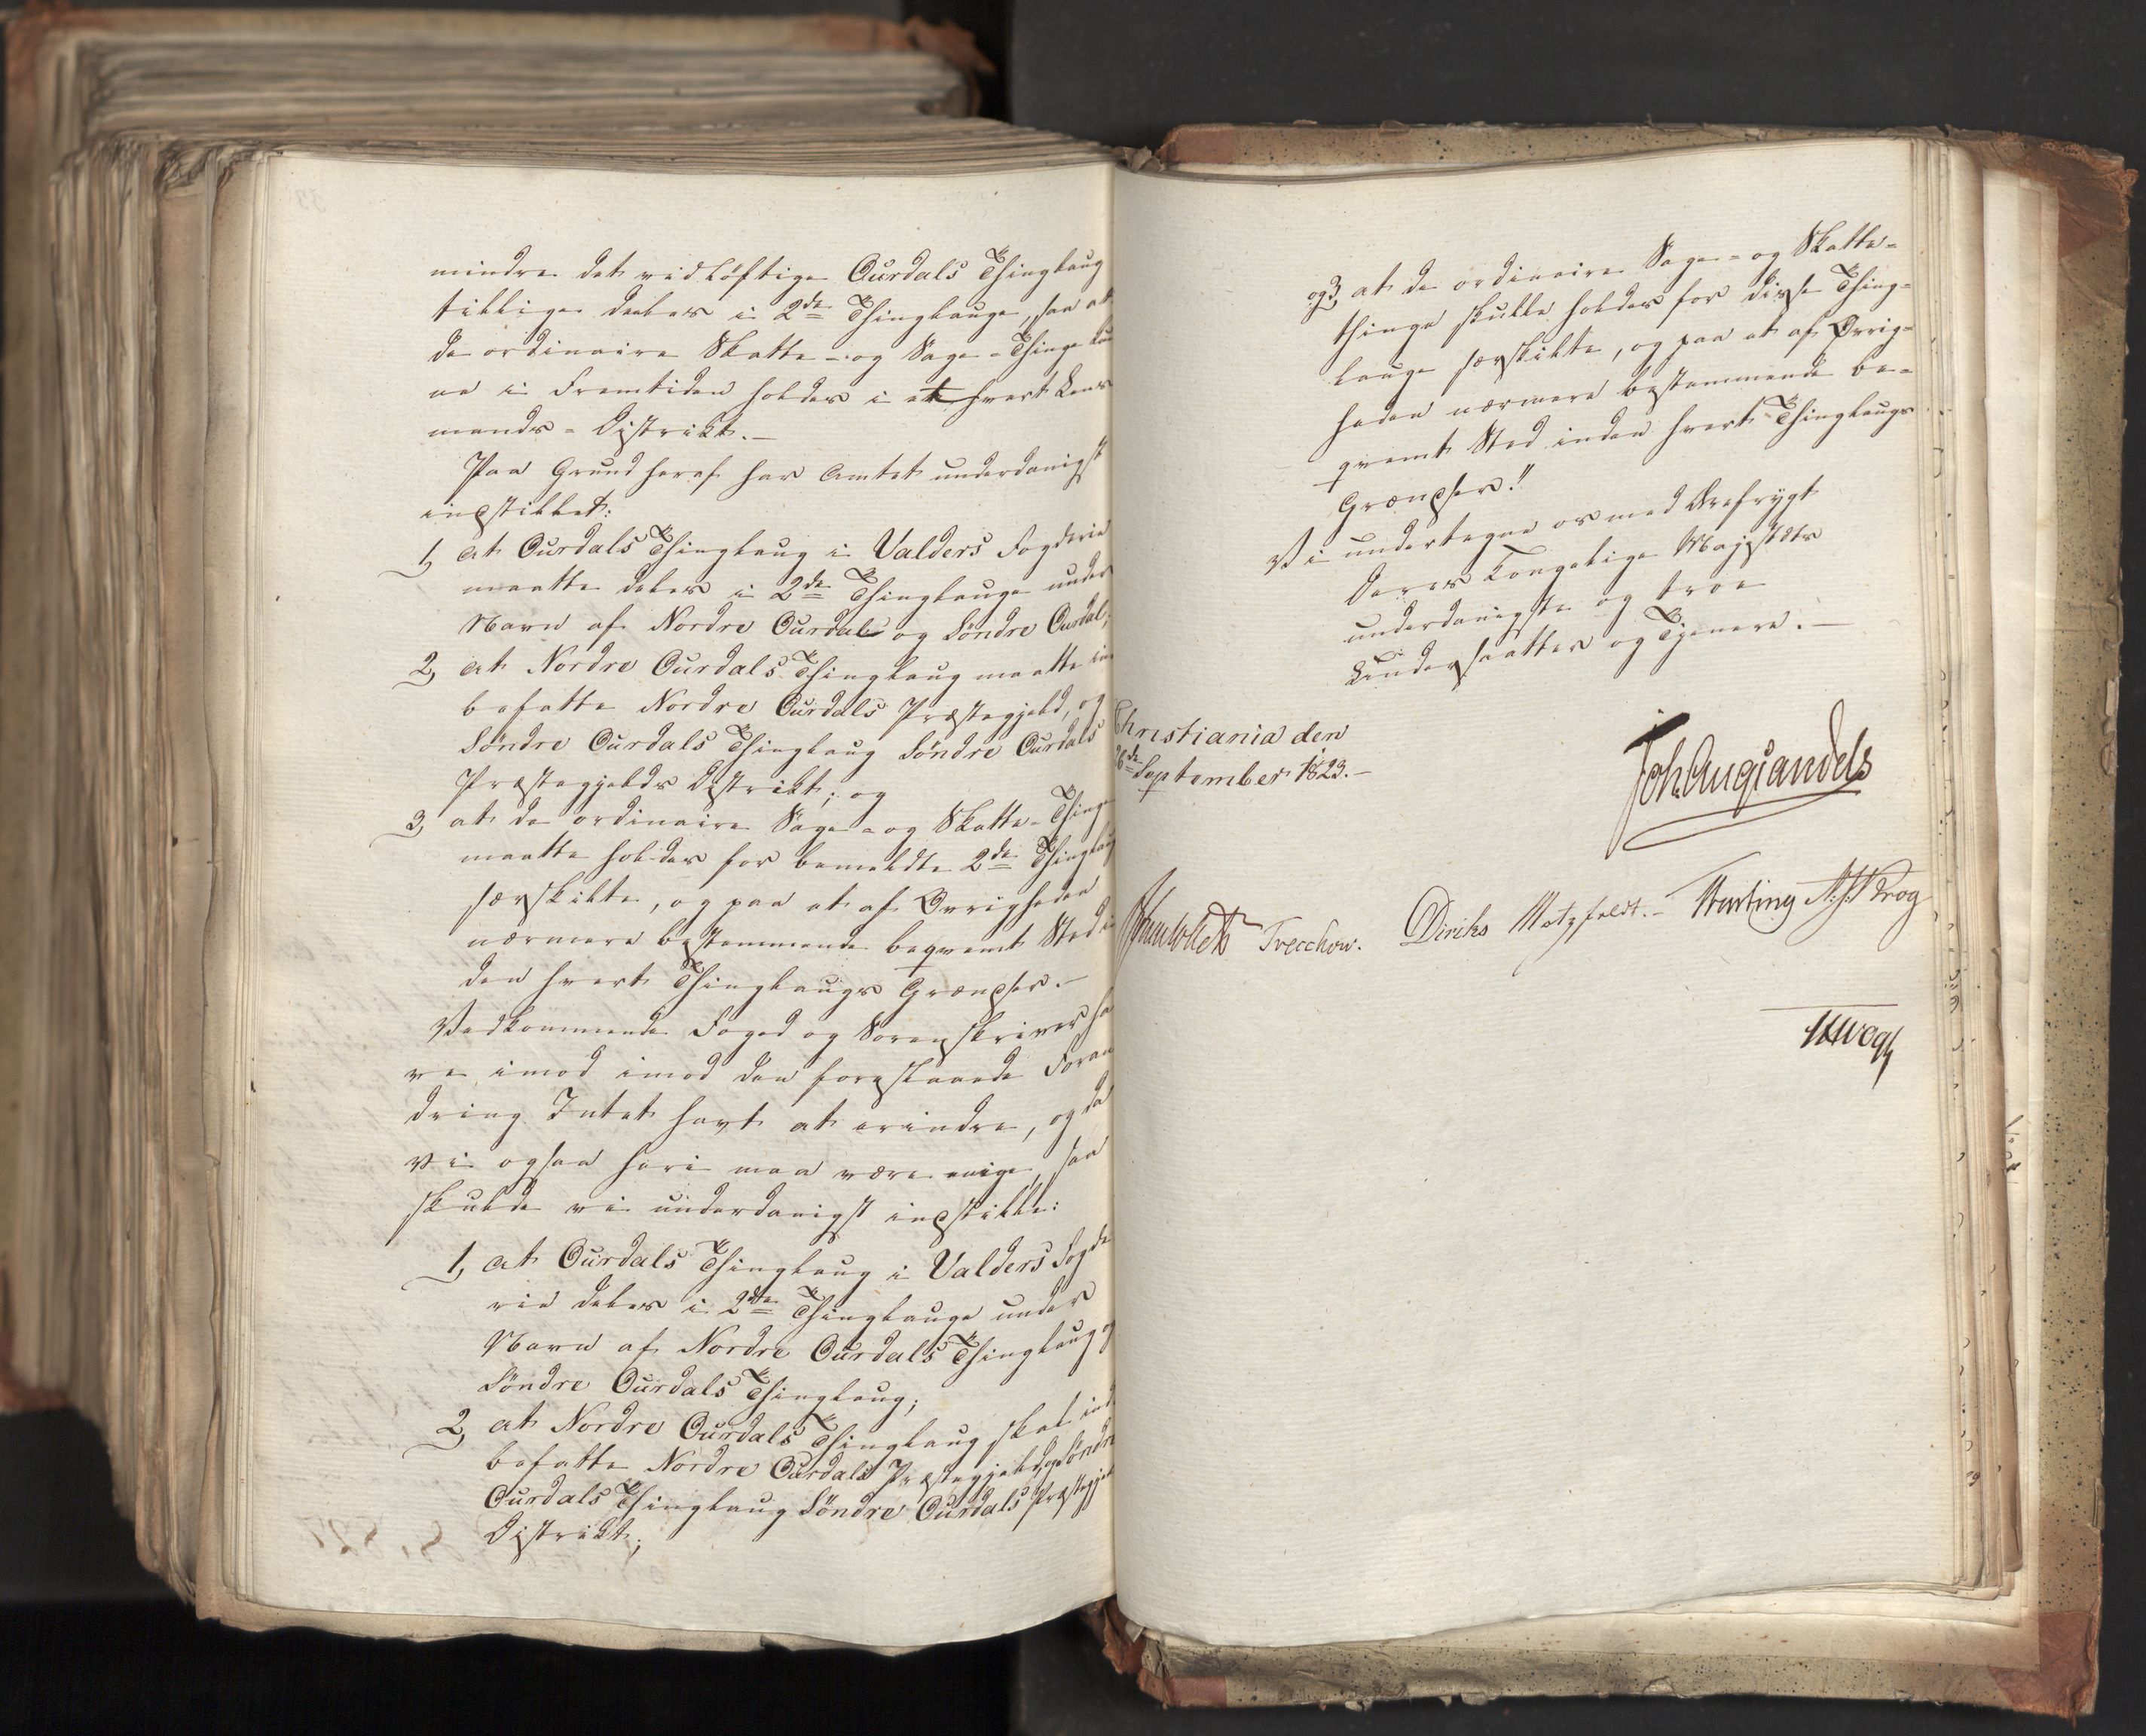 mindre det vidløftige Ourdals Thinglaug
tillige deeles i 2de Thinglauge, saa at
de ordinaire Skatte- og Sage-Thinge kun
ne i Fremtiden holdes i et hvert Lens
mands-Distrikt.-
Paa Grund heraf har Amtet underdanigst
indstillet:
1, at Ourdals Thinglaug i Valders Fogderie
maatte deles i 2de Thinglauge under
Navn af Nordre Ourdal og Søndre Ourdal;
2, at Nordre Ourdals Thinglaug maatte in
befatte Nordre Ourdals Præstegjeld, og
Søndre Ourdals Thinglaug Søndre Ourdals
Præstegjelds Distrikt; og
3, at de ordinaire Sage- og Skatte-Thinge
maatte holdes for bemeldte 2de Thinglaug
særskilte, og paa et af Øvrigheden
nærmere bestemmende beqvemt Sted in
den hvert Thinglaugs Grændser.-
Vedkommende Foged og Sorenskriver ha
ve imod imod den forestaaede Foran
dring Intet havt at erindre, og da
vi ogsaa heri maa være enige, saa
skulde vi underdanigst indstille:
1, at Ourdals Thinglaug i Valders Fogde
rie deles i 2de Thinglauge under
Navn af Nordre Ourdals Thinglaug og
Søndre Ourdals Thinglaug;
2, at Nordre Ourdals Thinglaug skal ind
befatte Nordre Ourdals Præstegjeld, og Søndre
Ourdals Thinglaug Søndre Ourdals Præstegjel
Distrikt;
og 3, at de ordinaire Sage- og Skatte-
thinge skulle holdes for disse Thing-
lauge særskilte, og paa et af Øvrig-
heden nærmere bestemmende be-
qvemt Sted inden hvert Thinglaugs
Grændser."
Vi undertegne os med Ærefrygt
Deres Kongelige Majestæts
underdanigste og troe
Undersaatter og Tjenere.-
Christiania den
26de September 1823.-
Joh. Aug Sandels
Sommerhielm Treschow. Diriks Motzfeldt.- Hertting A. J. Krog
HHVogt